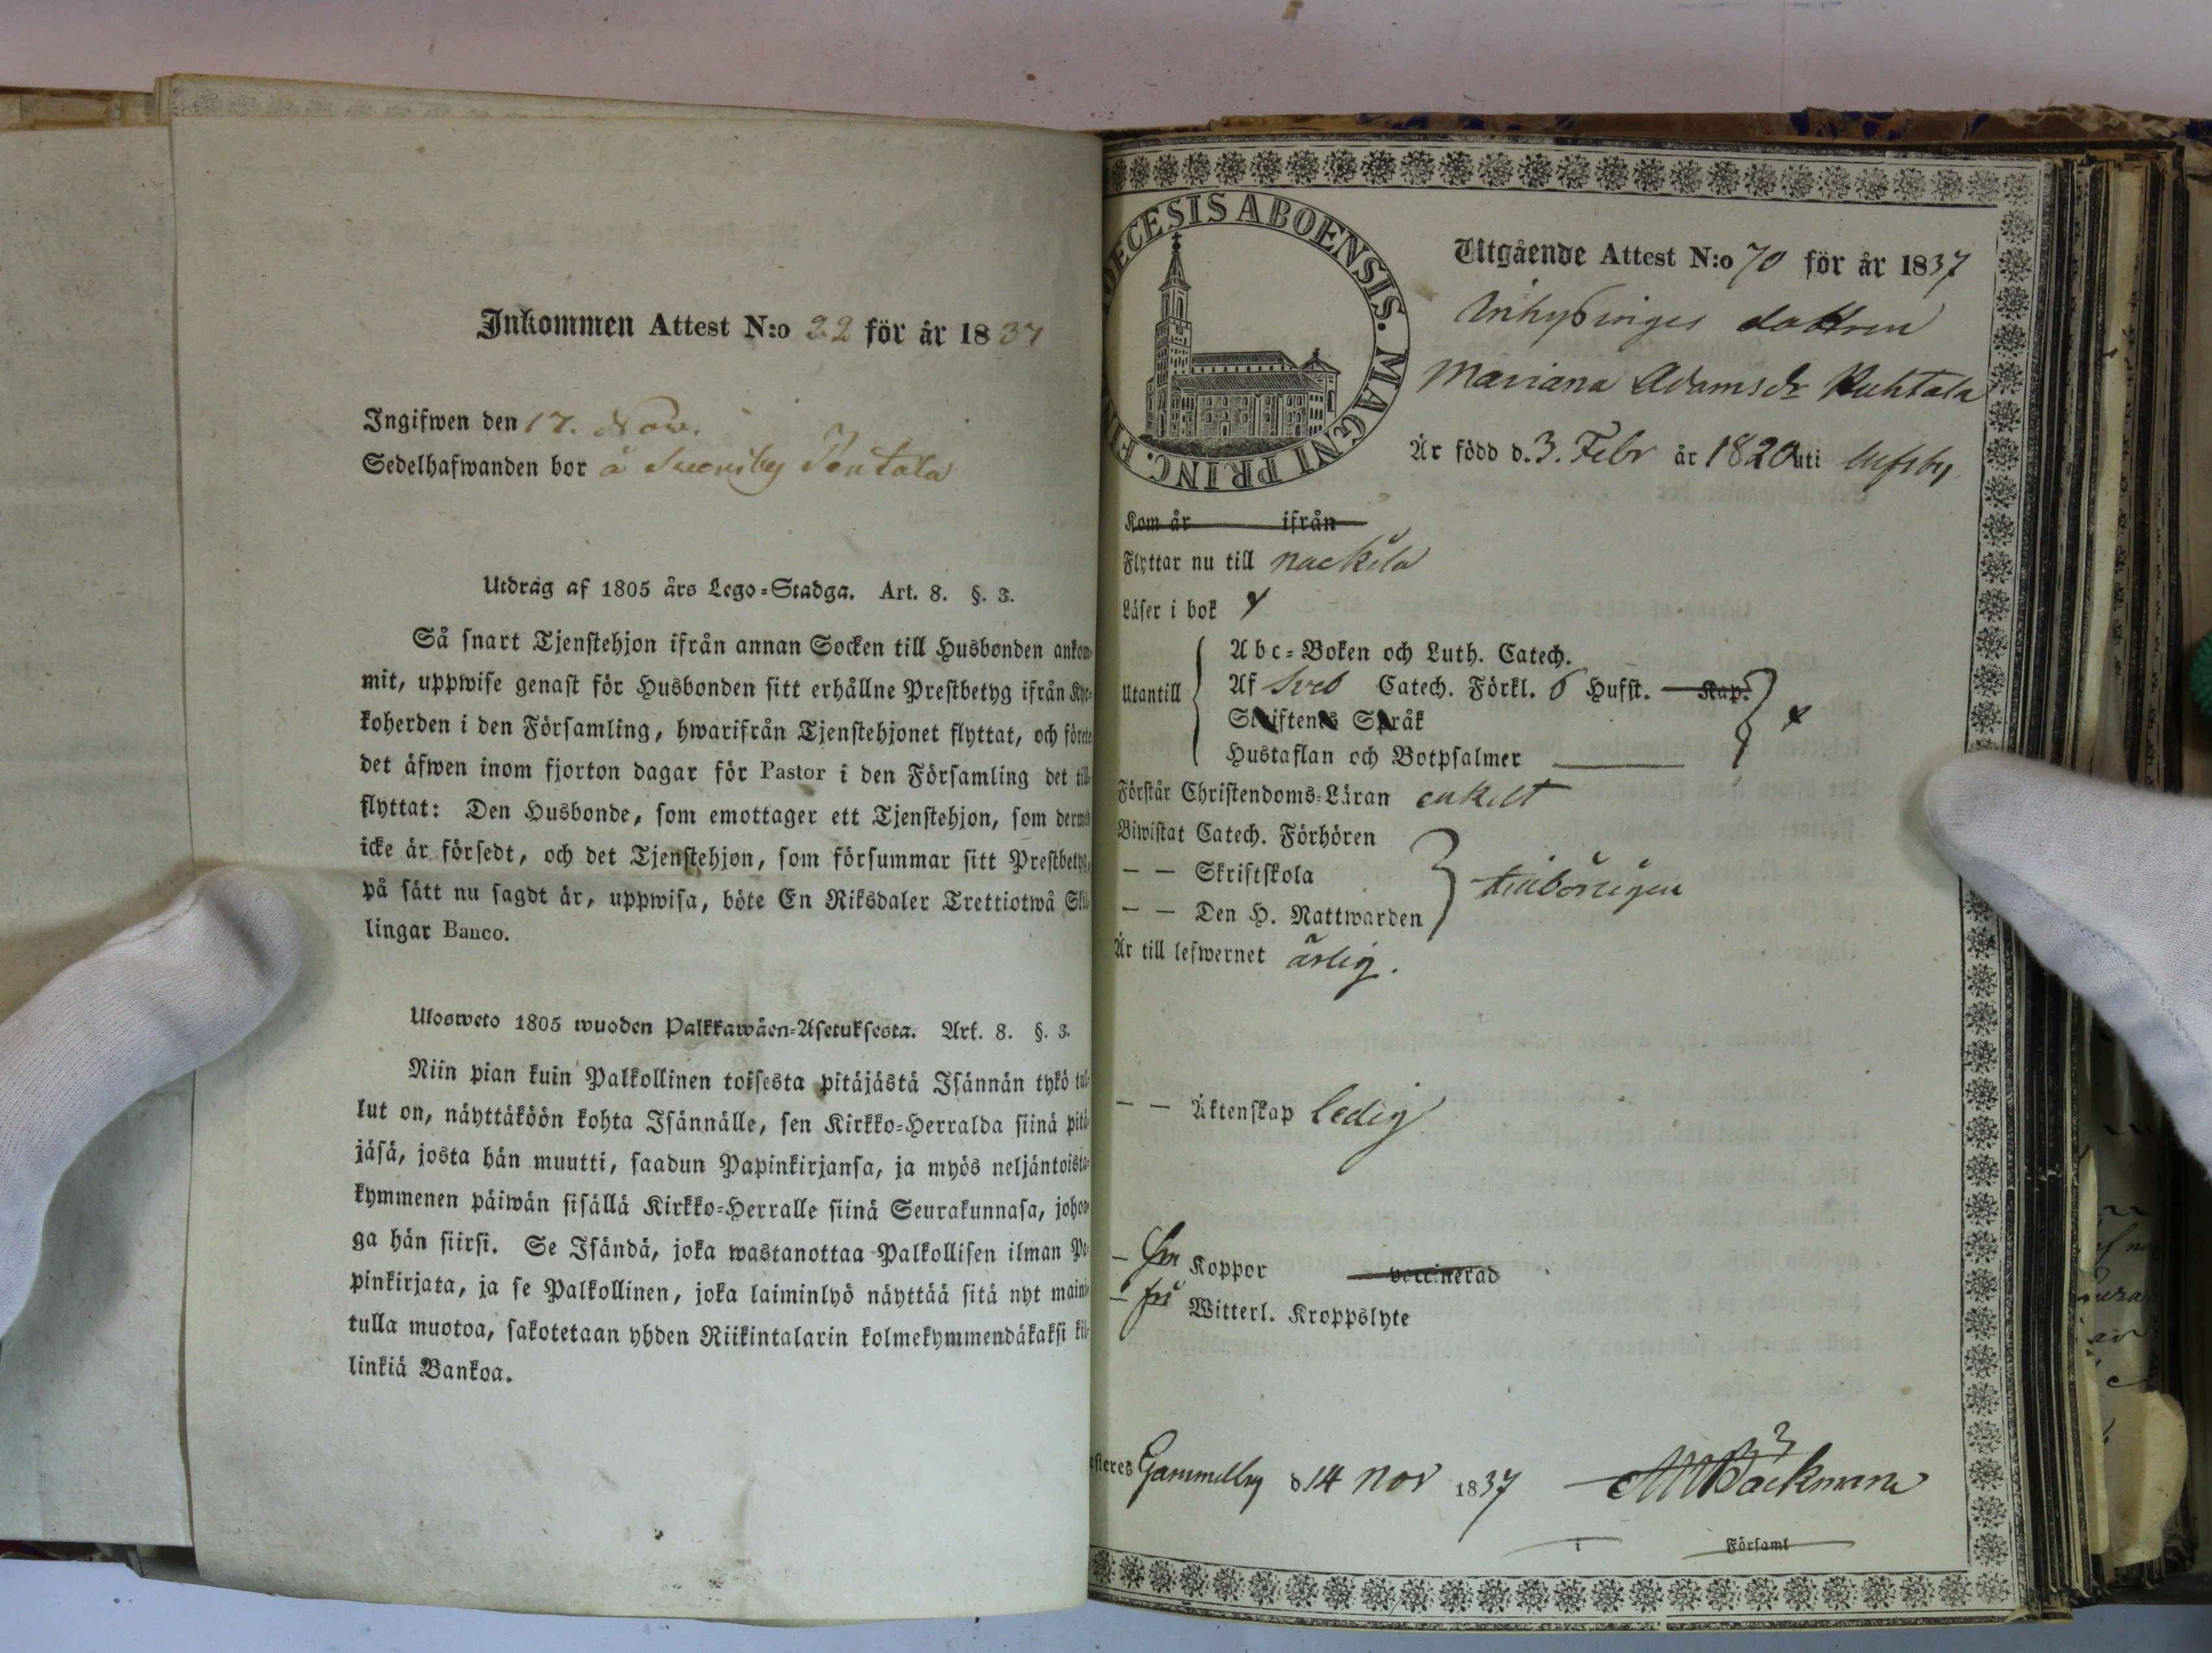 Inkommen Attest N:o 22 för år 1837
Ingifwen den 17. Nov.
Sedelhafwanden bor å Svenby Pentala
Utdrag af 1805 års Lego-Stadga. Art. 8. §. 3.
Så snart Tjenstehjon ifrån annan Socken till Husbonden ankom-
mit, uppwise genast för Husbonden sitt erhållne Prestbetyg ifrån Kyr-
koherden i den Församling, hwarifrån Tjenstehjonet flyttat, och förete
det äfwen inom fjorton dagar för Pastor i den Församling det till-
flyttat: Den Husbonde, som emottager ett Tjenstehjon, som dermed
icke är försedt, och det Tjenstehjon, som försummar sitt Prestbetyg,
på sätt nu sagdt är, uppwisa, böte En Riksdaler Trettiotwå Skil-
lingar Banco.
Ulosweto 1805 wuoden Palkkawäen-Asetuksesta. Art. 8. §. 3.
Niin pian kuin Palkollinen toisesta pitäjästä Isännän tykö tul-
lut on, näyttäköön kohta Isännälle, sen Kirkko-Herralda siinä pitä-
jäsä, josta hän muutti, saadun Papinkirjansa, ja myös neljäntoista-
kymmenen päiwän sisällä Kirkko-Herralle siinä Seurakunnasa, johon-
ga hän siirsi. Se Isändä, joka wastanottaa Palkollisen ilman Pa-
pinkirjata, ja se Palkollinen, joka laiminlyö näyttää sitä nyt maini-
tulla muotoa, sakotetaan yhden Riikintalarin kolmekymmendäkaksi kil-
linkiä Bankoa.
DIOECESIS ABOENSIS. MAGNI PRINC. FIN
Utgående Attest N:o 70 för år 1837
Inhysinges dottren
Mariana Adamsdr Huhtala
Är född d. 3. Febr år 1820 uti Ulfsby
Kom år ifrån
Flyttar nu till Nackila
Läser i bok
Utantill
Abc-Boken och Luth. Catech.
Af Sveb Catech. Förkl. 6 Hufst. Kap.
Skriftenes Språk
Hustaflan och Botpsalmer
Förstår Christendoms-Läran enkelt
Biwistat Catech. Förhören
— — Skriftskola
— — Den H. Nattwarden
tillbörligen
Är till lefwernet ärlig.
— — Äktenskap ledig
— Koppor vaccinerad
— fri Witterl. Kroppslyte
Gammelby d. 14 Nov 1837 Bäckman
Församl